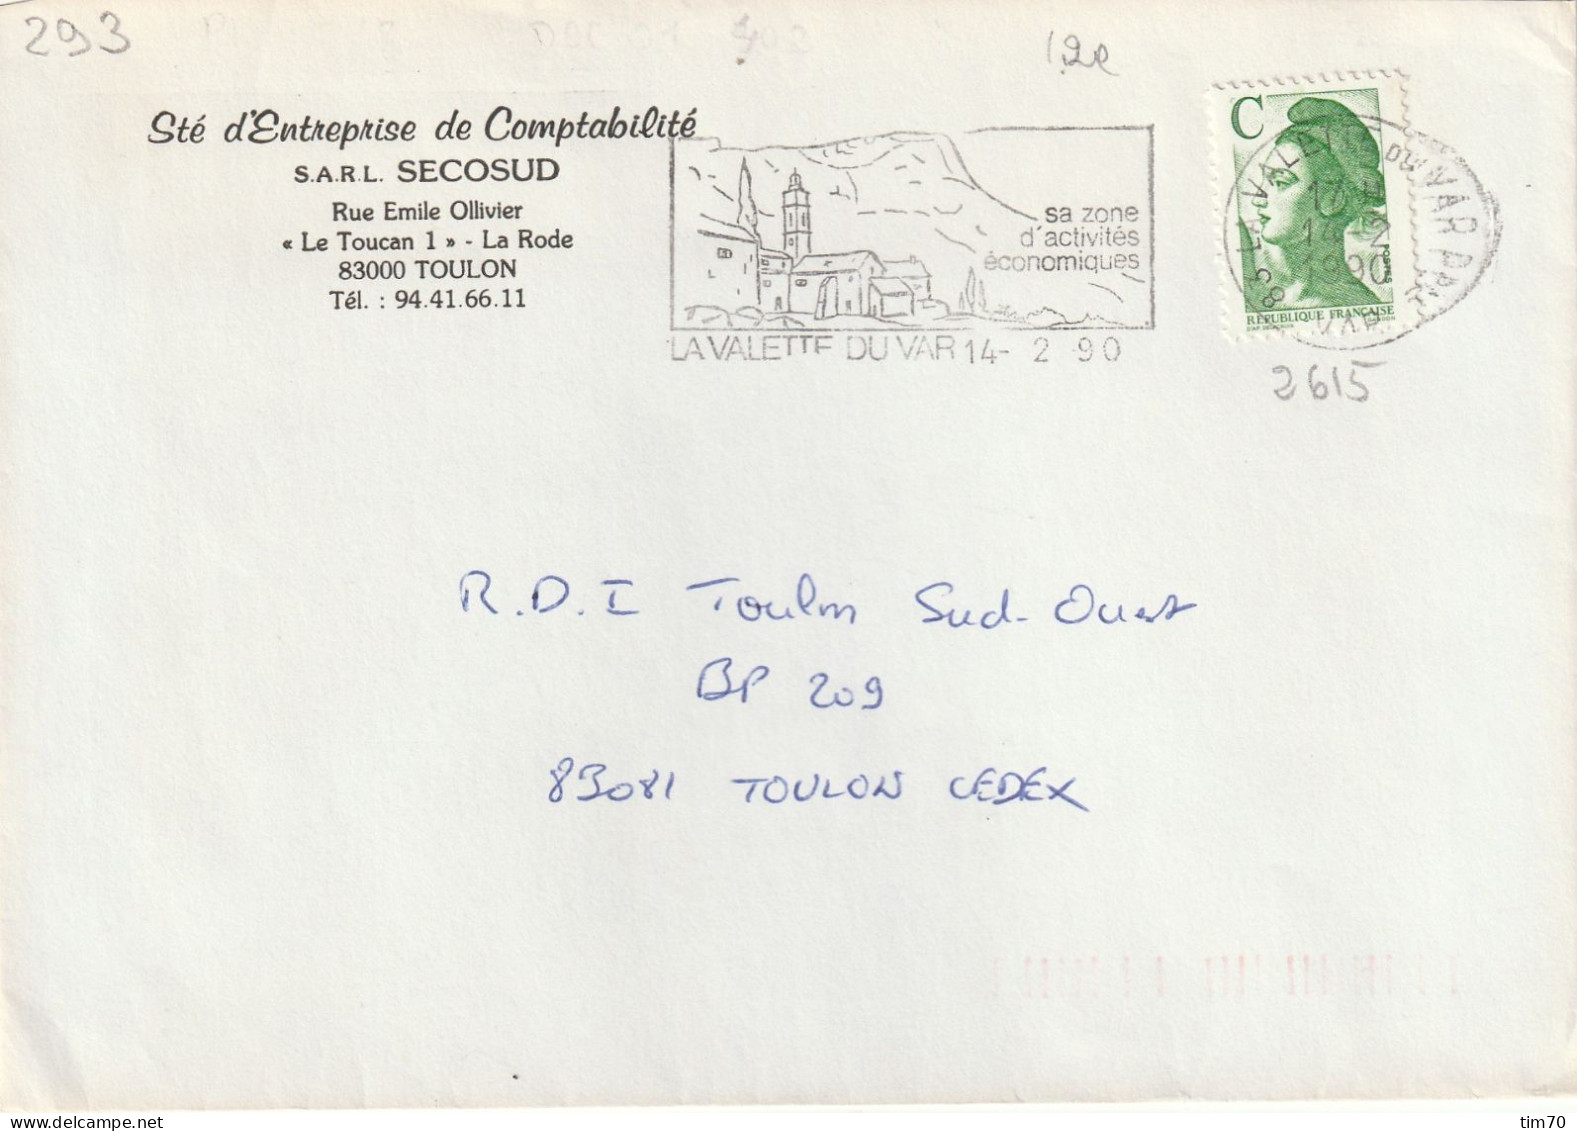 293
12e
Sté d'Entreprise de Comptabilité
S.A.R.L. SECOSUD
Rue Emile Ollivier
« Le Toucan 1 » - La Rode
83000 TOULON
Tél. : 94.41.66.11
sa zone
d'activités
économiques
LA VALETTE DU VAR 14- 2 -90
C
POSTES
RÉPUBLIQUE FRANÇAISE
83 LA VALETTE DU VAR PAL
17 H
14 2
1990
VAR
2615
R.D.I Toulon Sud-Ouest
BP 209
83081 TOULON CEDEX
tim70